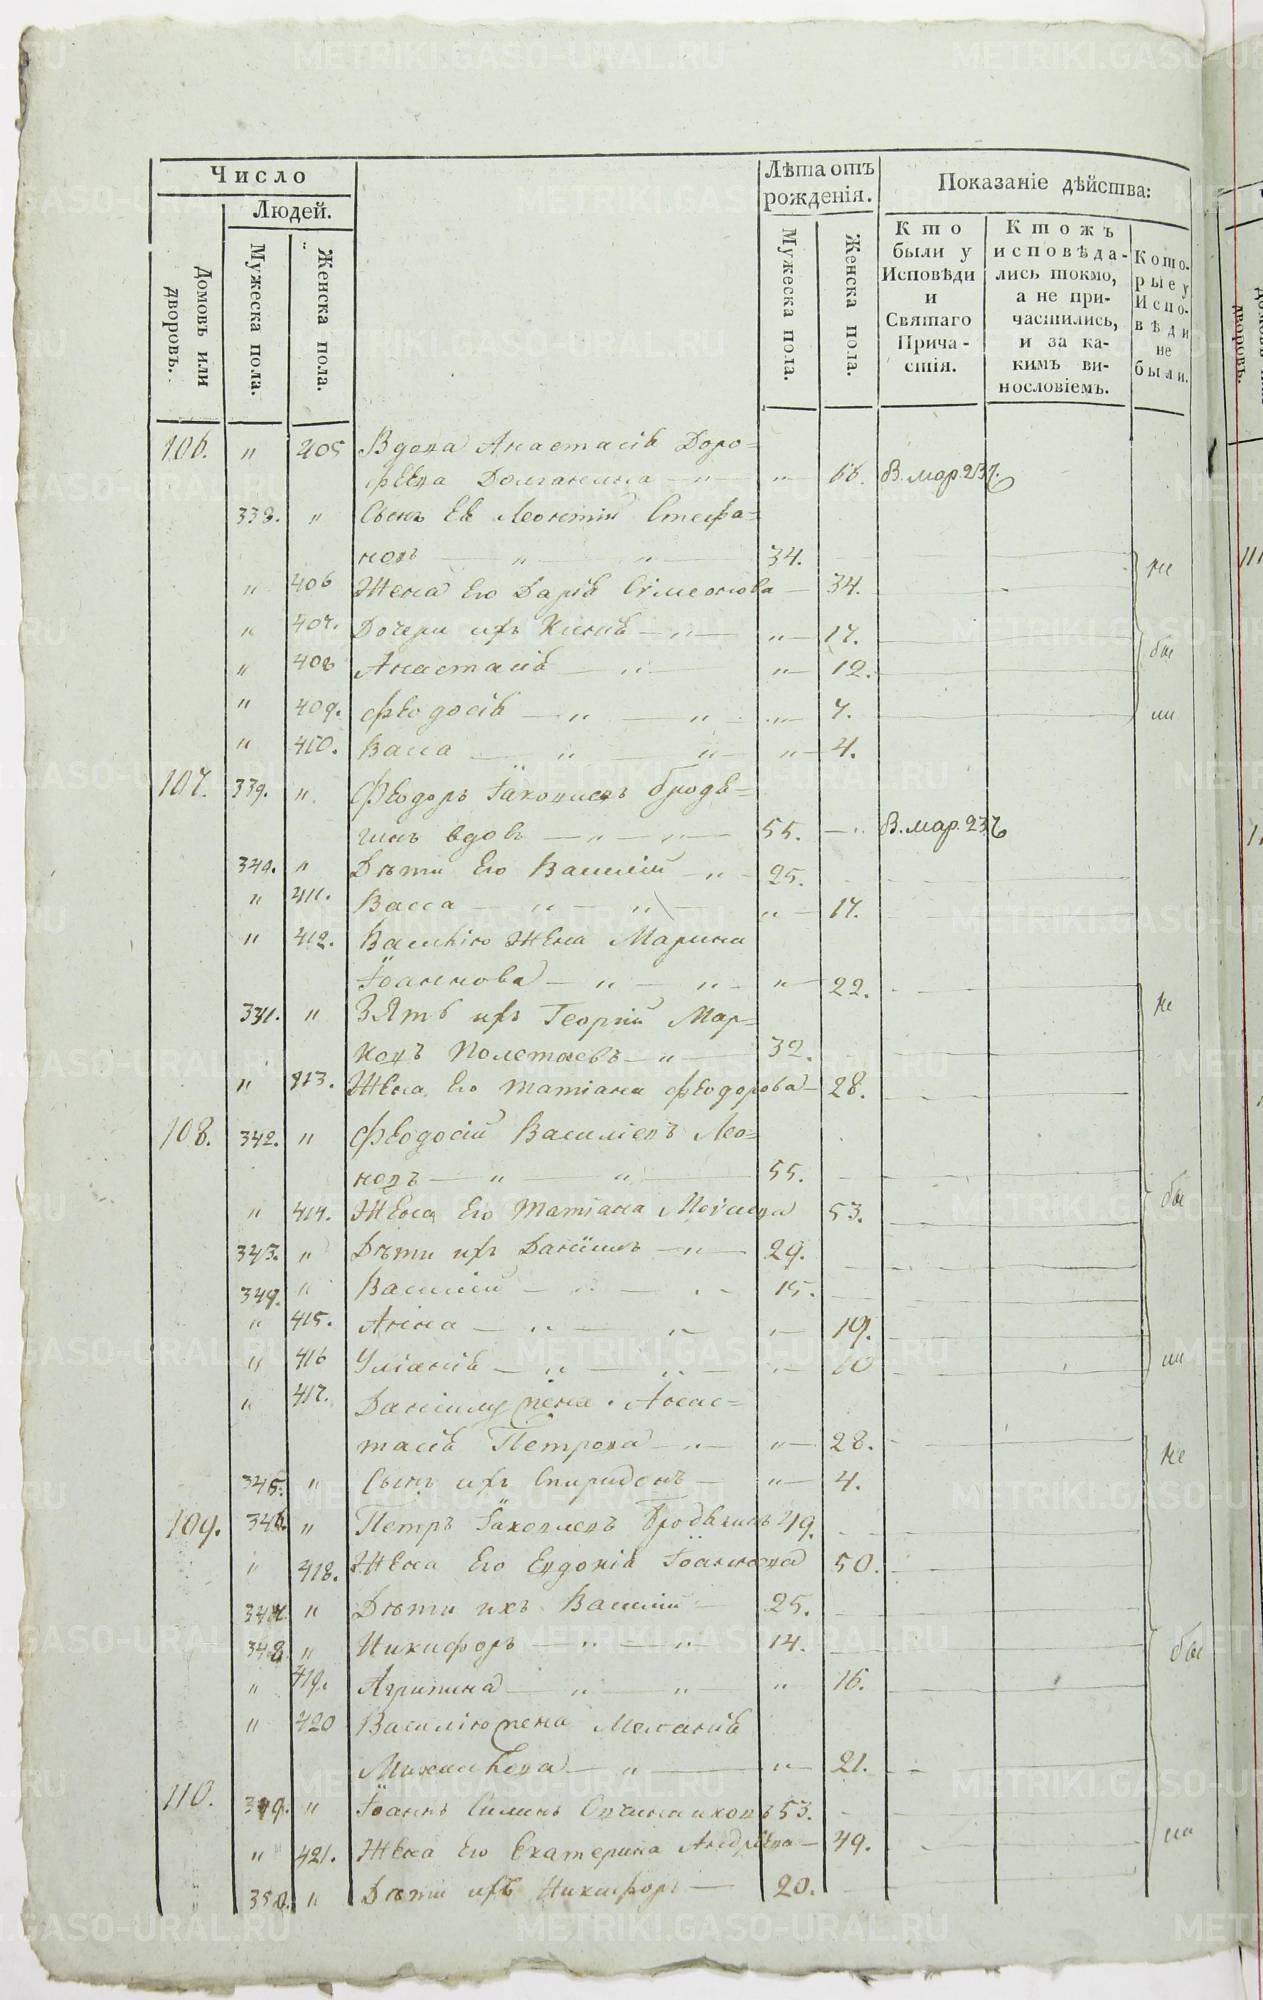 Число
Людей.
Домовъ или дворовъ.
Мужеска пола.
Женска пола.
Лѣта отъ рожденія.
Мужеска пола.
Женска пола.
Показаніе дѣйства:
Кто были у Исповѣди и Святаго Прича-стія.
Ктожъ исповѣда-лись токмо, а не при-частились, и за ка-кимъ ви-нословіемъ.
Кото-рые у Испо-вѣди не были.
106. " 405 Вдова Анастасія Доро=
фѣева — " — " — 66. В. мар. 237.
338. " Сынъ Ея Леонтій Стефа=
новъ — " — " — 34.
" 406 Жена Его Дарія Сѵмеонова — 34.
" 407. Дочери ихъ — " — " — 17.
" 408 Анастасія — " — " — 12.
" 409. Ѳеодосія — " — " — " — 7.
" 410. Васса — " — " — " — 4.
не
бы
ли
107. 339. " Ѳеодоръ Іаковлевъ Бродя=
гинъ вдовъ — " — " — 55. — " В. мар. 236
340. " Дѣти Его Василій — " — 25.
" 411. Васса — " — " — " — 17.
" 412. Василію Жена Марина
Іоаннова — " — " — " — 22.
341. " Зять ихъ Георгій Мар=
ковъ Полетаевъ — " — 32.
" 413. Жена Его Татіана Ѳеодорова — 28.
108. 342. " Ѳеодосій Василіевъ Лео=
новъ — " — " — 55.
" 414. Жена Его Татіана 53.
343. " Дѣти ихъ Даніилъ — " — 29.
344. " Василій — " — " — 15.
" 415. Анна — " — " — " — 19.
" 416 Уліанія — " — " — " — 10
" 417. Даніилу жена Анас=
тасія Петрова — " — " — 28.
345. " Сынъ ихъ Спиридонъ — " — 4.
не
бы
ли
109. 346. " Петръ Іаковлевъ Бродягинъ 49.
" 418. Жена Его Евдокія Іоаннова 50.
347. " Дѣти ихъ Василій — 25.
348. " Никифоръ — " — " — 14.
" 419. Агрипина — " — " — " 16.
" 420 Василію жена Меланія
Михайлова — " — " — 21.
110. 349. " Іоаннъ Силинъ Овчинниковъ 53.
" 421. Жена Его Екатерина Андрѣева — 49.
350. " Дѣти ихъ Никифоръ — 20.
не
бы
ли
METRIKI.GASO-URAL.RU